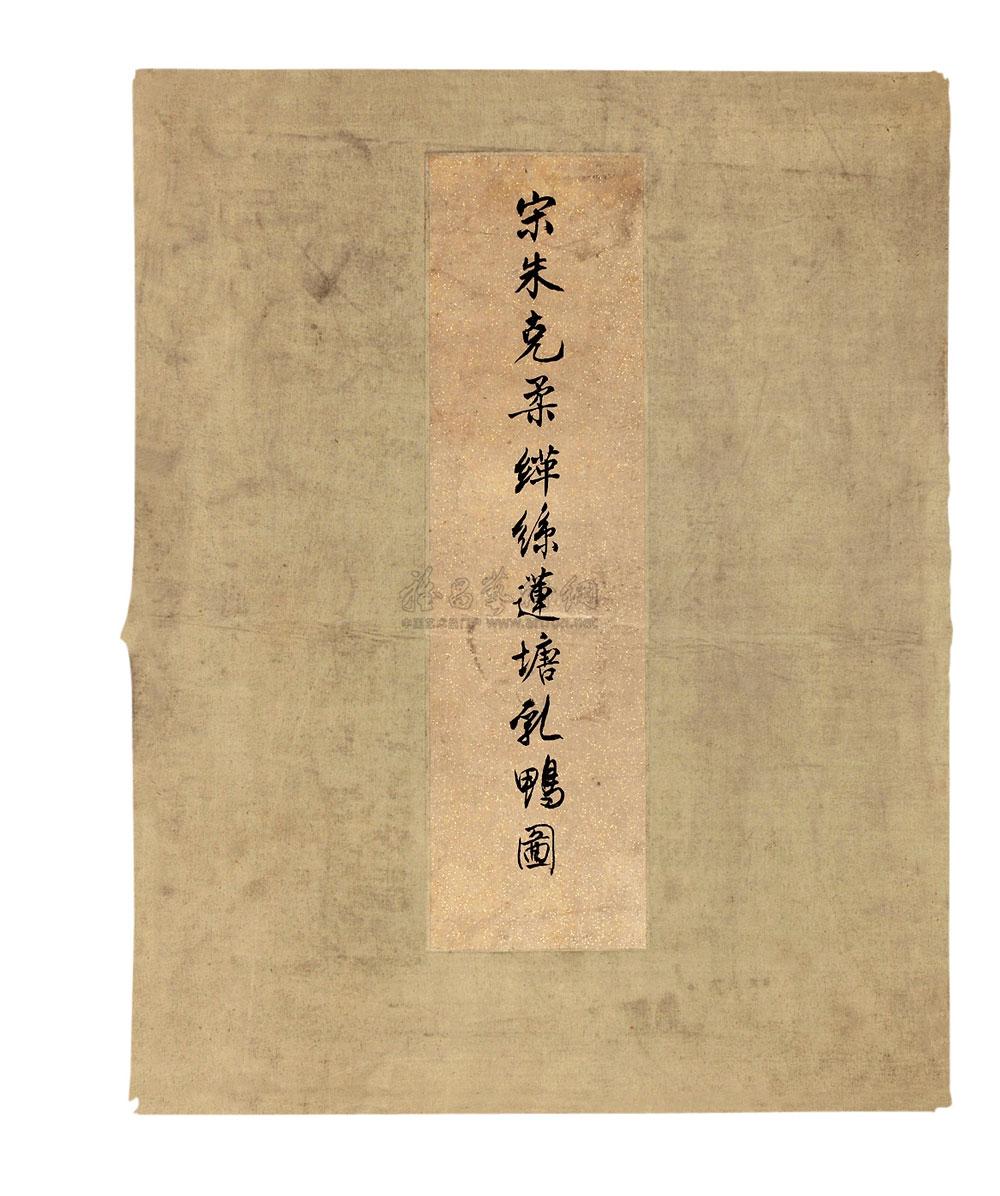 宋朱克柔緙絲蓮塘乳鴨圖
雅昌藝術網
中国艺术品门户 www.artron.net